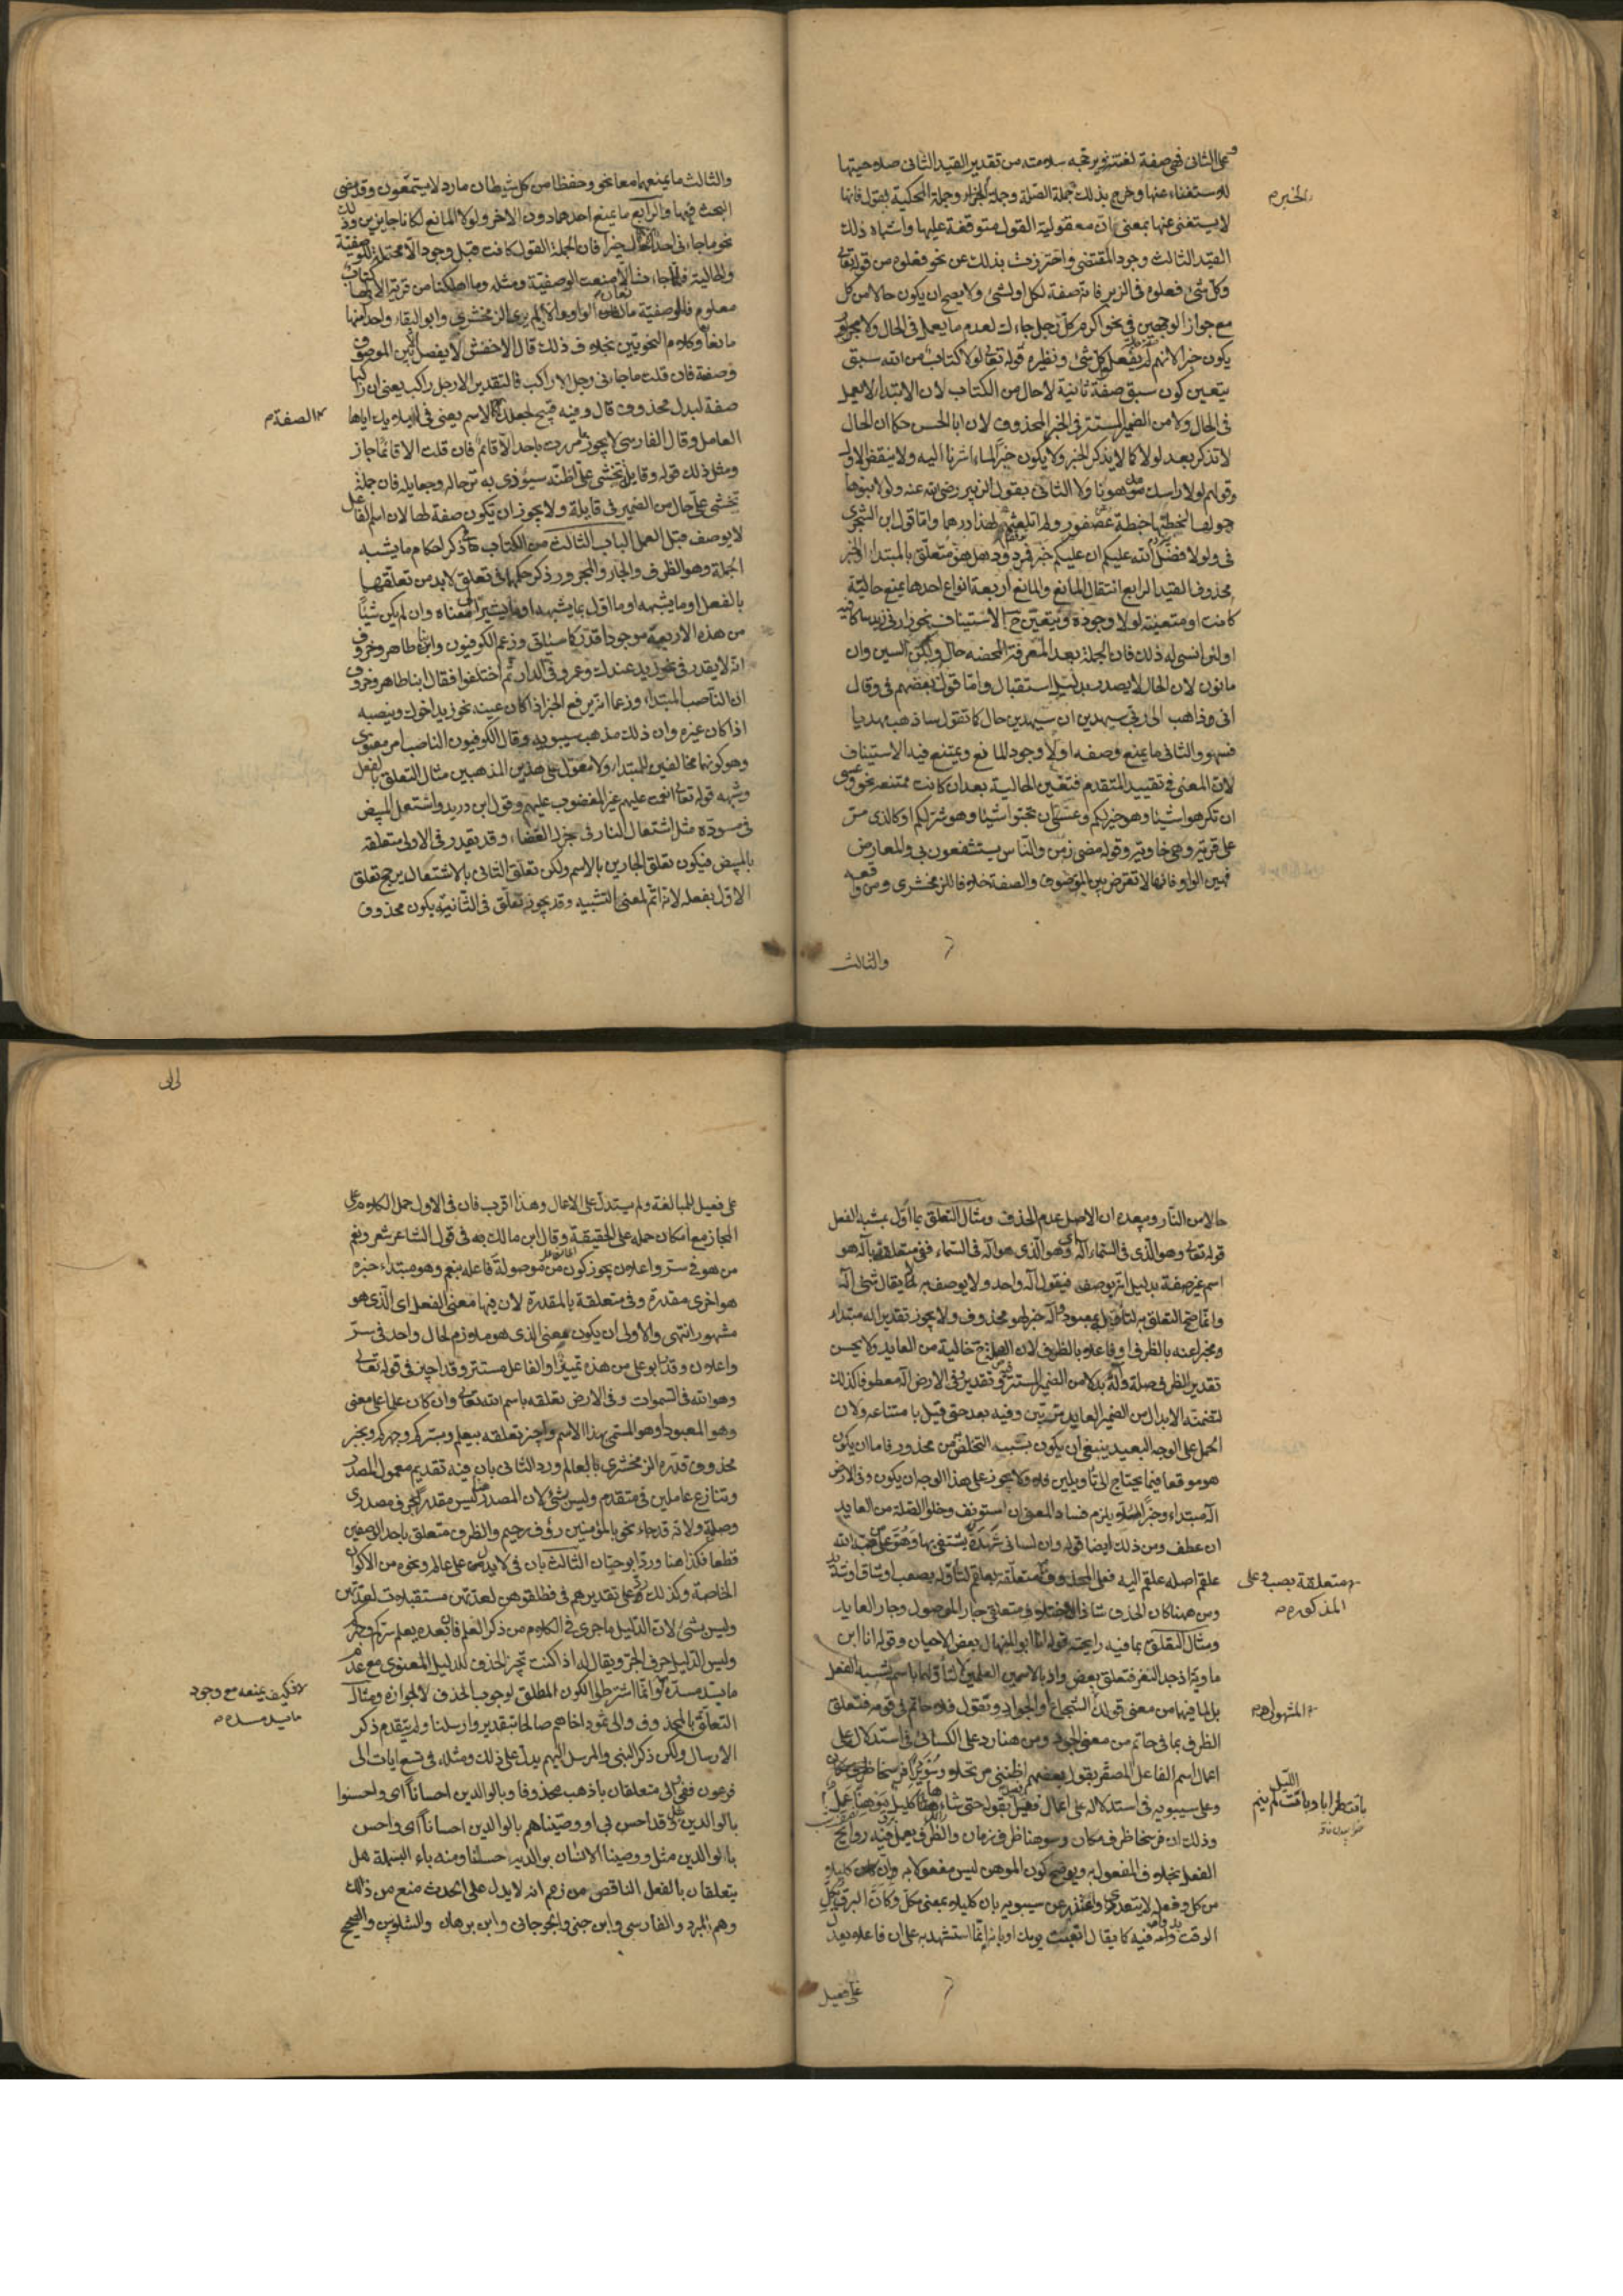 على الثانى فهى صفة لغت نوير تجبه سلامته من تقدير القيد الثانى صلاحيتها
للاستغناء عنها وخرج بذلك جملة الصلة وجملة الخبر وجملة المحكية بقول فانها
الخبرم
لا يستغنى عنها بمعنى ان معقولية القول متوقفة عليها واشباه ذلك
القيد الثالث وجود المقتضى واحترزت بذلك عن نحو فعلوه من قوله تعالى
وكل شئ فعلوه فى الزبر فانه صفة لكل او لشئ ولا يصح ان يكون حالا من كل
مع جواز الوجهين فى نحو اكرم كل رجل جاءك لعدم ما يعمل فى الحال ولا يجوز
يكون خبرا لانهم لم يفعلوا كل شئ ونظيره قوله تعالى لولا كتاب من الله سبق
يتعين كون سبق صفة ثانية لا حال من الكتاب لان الابتداء لا يعمل
فى الحال ولا من الضمير المستتر فى الخبر المحذوف لان ابا الحسن حكى ان الحال
لا تذكر بعد لولا كما لا يذكر الخبر ولا يكون خبرا لما اشرنا اليه ولا ينقض الاول
وقولهم لولا راسك مدهونا ولا الثانى بقول الزبير رضى الله عنه ولولا بنوها
حولها لخبطتها خبطة عصفور ولم اتلعثم
فى ولولا فضل الله عليكم ان عليكم خبر فمردود بل هو متعلق بالمبتداء والخبر
محذوف القيد الرابع انتفاء المانع والمانع اربعة انواع احدها يمنع حالية
كانت او متعينة لولا وجوده ويتعين ح الاستيناف نحو زارنى زيد ساكافيه
او لن انسى له ذلك فان الجملة بعد المعرفة المحضة حال ولكن السين ولن
مانعان لان الحال لا يصدر بدليل استقبال واما قول بعضهم فى وقال
انى ذاهب الى ربى سيهدين ان سيهدين حال كما تقول ساذهب مهديا
فسهو والثانى ما يمنع وصفه اولا وجود المانع ويمتنع فيه الاستيناف
لان المعنى فى تقييد المتقدم فتتعين الحالية بعد ان كانت ممتنعة نحو وعسى
ان تكرهوا شيئا وهو خير لكم وعسى ان تحبوا شيئا وهو شر لكم او كالذى مر
على قرية وهى خاوية وقوله مضى زمن والناس يستشفعون بى والمعارض
فيهن الواو فانها لا تعترض بين الموصوف والصفة خلافا للزمخشرى ومن وافقه
والثالث
والثالث ما يمنعهما معا نحو وحفظا من كل شيطان مارد لا يستمعون وقد مضى
البحث فيها والرابع ما يمنع احدهما دون الاخر ولولا المانع لكانا جايزين وذلك
نحو ما جاءنى احد الا قال خيرا فان الجملة القول كانت قبل وجود الا محتملة للوصفية
والحالية فلما جاءت الا منعت الوصفية ومثله وما اهلكنا من قرية الا ولها كتاب
معلوم فللوصفية مانعان الواو والا ولم يرى الزمخشرى وابو البقاء واحدا منهما
مانعا وكلام النحويين بخلاف ذلك قال الاخفش لا يفصل بين الموصوف
وصفة فان قلت ما جاءنى رجل الا راكب فالتقدير الا رجل راكب يعنى ان راكبا
صفة لبدل محذوف قال وفيه قبح لجعلك كالاسم يعنى فى ايلائك اياها
الصفةم
العامل وقال الفارسى لا يجوز مررت باحد الا قائم فان قلت الا قائما جاز
ومثل ذلك قوله وقايلة تخشى على اظنه سيودى به ترحاله وجعايله فان جملة
تخشى على حال من الضمير فى قايلة ولا يجوز ان تكون صفة لها لان اسم الفاعل
لا يوصف قبل العمل الباب الثالث من الكتاب فى ذكر احكام ما يشبه
الجملة وهو الظرف والجار والمجرور ذكر حكمهما فى تعلق لا بد من تعلقهما
بالفعل او ما يشبهه او ما اول بما يشبهه او ما يشير الى معناه وان لم يكن شيئا
من هذه الاربعة موجودا قدر كما سيأتى وزعم الكوفيون وابنا طاهر وخروف
انه لا يقدر فى نحو زيد عندك وعمرو فى الدار ثم اختلفوا فقال ابنا طاهر وخروف
ان الناصب المبتداء وزعما انه يرفع الخبر اذا كان عينه نحو زيد اخوك وينصبه
اذا كان غيره وان ذلك مذهب سيبويه وقال الكوفيون الناصب امر معنوى
وهو كونهما مخالفين للمبتداء ولا معول على هذين المذهبين مثال التعلق بالفعل
وشبهه قوله تعالى انعمت عليهم غير المغضوب عليهم وقول ابن دريد واشتعل المبيض
فى مسوده مثل اشتعال النار فى جزل الغضاء وقد يقدر فى الاولى متعلقه
بالمبيض فيكون تعلق الجارين بالاسم ولكن تعلق الثانى بالاشتعال يرجح تعلق
الاول بفعله لانه اتم لمعنى التشبيه وقد يجوز تعلق فى الثانية يكون محذوف
حالا من النار ويبعده ان الاصل عدم الحذف ومثال التعلق بما اول بشبه الفعل
قوله تعالى وهو الذى فى السماء اله اى وهو الذى هو اله فى السماء ففى متعلقة باله وهو
اسم غير صفة بدليل انه يوصف فيقول اله واحد ولا يوصف به لا يقال شئ اله
وانما صح التعلق به لتأوله بمعبود واله خبر لهو محذوف ولا يجوز تقدير اله مبتداء
ومخبرا عنه بالظرف او فاعلا بالظرف لان الصلة ح خالية من العايد ولا يحسن
تقدير الظرف صلة واله بدلا من الضمير المستتر فيه وتقدير وفى الارض اله معطوفا كذلك
لتضمنه الابدال من الضمير العايد مرتين وفيه بعد حتى قيل بامتناعه ولان
الحمل على الوجه البعيد ينبغى ان يكون بسبب التخلص من محذور فاما ان يكون
هو موقعا فيما يحتاج الى تأويلين فلا ولا يجوز على هذا الوجه ان يكون وفى الارض
اله مبتداء وخبرا لئلا يلزم فساد المعنى ان استونف وخلو الصلة من العايد
ان عطف ومن ذلك ايضا قوله وان لسانى شهدة يشتفى بها وهو على من صبه الله
علقم اصله علقم عليه فعلى المحذوفة متعلقة بعلقم لتأوله بصعب او شاق او شديد
متعلقة بصب وعلى
المذكورة
ومن هنا كان الحذف شاذا لاختلاف متعلقى جار الموصول وجار العايد
ومثال التعلق بما فيه رايحته قوله انا ابو المنهال بعض الاحيان وقوله انا ابن
ماوية اذ جد النقر فتعلق بعض واذ بالاسمين العلمين لا لتأولهما باسم يشبه الفعل
بل لما فيهما من معنى قولك الشجاع او الجواد وتقول فلان حاتم فى قومه فتعلق
الظرف بما فى حاتم من معنى الجود ومن هنا رد على الكسائى فى استدلال على
اعمال اسم الفاعل المصغر بقول بعضهم اظننى مرتحلا وسويرا فرسخا
وعلى سيبويه فى استدلاله على اعمال فعيل بقوله حتى شاءها كليل موهنا عمل
وذلك ان فرسخا ظرف مكان وموهنا ظرف زمان والظرف يعمل فيه روايح
الفعل بخلاف المفعول به ويوضح كون الموهن ليس مفعولا به وان كليلا
من كل وفعله لا يتعدى واعتذر عن سيبويه بان كليلا بمعنى مكل وكان البرق يكل
الوقت بدوامه فيه كما يقال اتعبت يومك او بانه انما استشهد به على ان فاعلا يعدل
على فعيل
على فعيل للمبالغة ولم يستدل على الاعمال وهذا اقرب فان فى الاول حمل الكلام على
المجاز مع امكان حمله على الحقيقة وقال ابن مالك به فى قول الشاعر شعر ونعم
من هو فى سر واعلان يجوز كون من موصولة فاعله بنعم وهو مبتداء خبره
هو اخرى مقدرة وفى متعلقة بالمقدرة لان فيها معنى الفعل اى الذى هو
مشهور انتهى والاولى ان يكون بمعنى الذى هو ملازم لحال واحد فى سر
واعلان وقدر ابو على من هذه تمييزا والفاعل مستتر وقد اجيز فى قوله تعالى
وهو الله فى السموات وفى الارض تعلقه باسم الله تعالى وان كان علما على معنى
وهو المعبود او هو المسمى بهذا الاسم واجيز تعلقه بيعلم وبسركم وجهركم وبخبر
محذوف قدره الزمخشرى بالعالم ورد الثانى بان فيه تقديم معمول المصدر
وتنازع عاملين فى متقدم وليس بشئ لان المصدر هنا ليس مقدرا بحرف مصدرى
وصلته ولانه قد جاء نحو بالمؤمنين رؤف رحيم والظرف متعلق باحد الوصفين
قطعا فكذا هنا ورد ابو حيان الثالث بان فى لا يدل على عالم ونحوه من الاكوان
الخاصة وكذلك رد على تقديرهم فى فطلقوهن لعدتهن مستقبلات لعدتهن
وليس بشئ لان الدليل ما جرى فى الكلام من ذكر العلم فان بعده يعلم سركم وجهركم
وليس الدليل حرف الجر ويقال له اذا كنت تجيز الحذف للدليل المعنوى مع عدم
ما يسد مسده وانما اشترطوا الكون المطلق لوجوب الحذف لا لجوازه ومثال
فكيف يمنعه مع وجود
ما يسد مسده
التعلق بالمحذوف والى ثمود اخاهم صالحا بتقدير وارسلنا ولم يتقدم ذكر
الارسال ولكن ذكر النبى والمرسل اليهم يدل على ذلك ومثله فى تسع ايات الى
فرعون ففى والى متعلقان باذهب محذوفا وبالوالدين احسانا اى واحسنوا
بالوالدين وقد احسن بى او ووصيناهم بالوالدين احسانا اى واحسن
بالوالدين مثل ووصينا الانسان بوالديه حسنا ومنه باء البسملة هل
يتعلقان بالفعل الناقص من زعم انه لا يدل على الحدث منع من ذلك
وهم المبرد والفارسى وابن جنى والجرجانى وابن برهان والشلوبين والصحيح